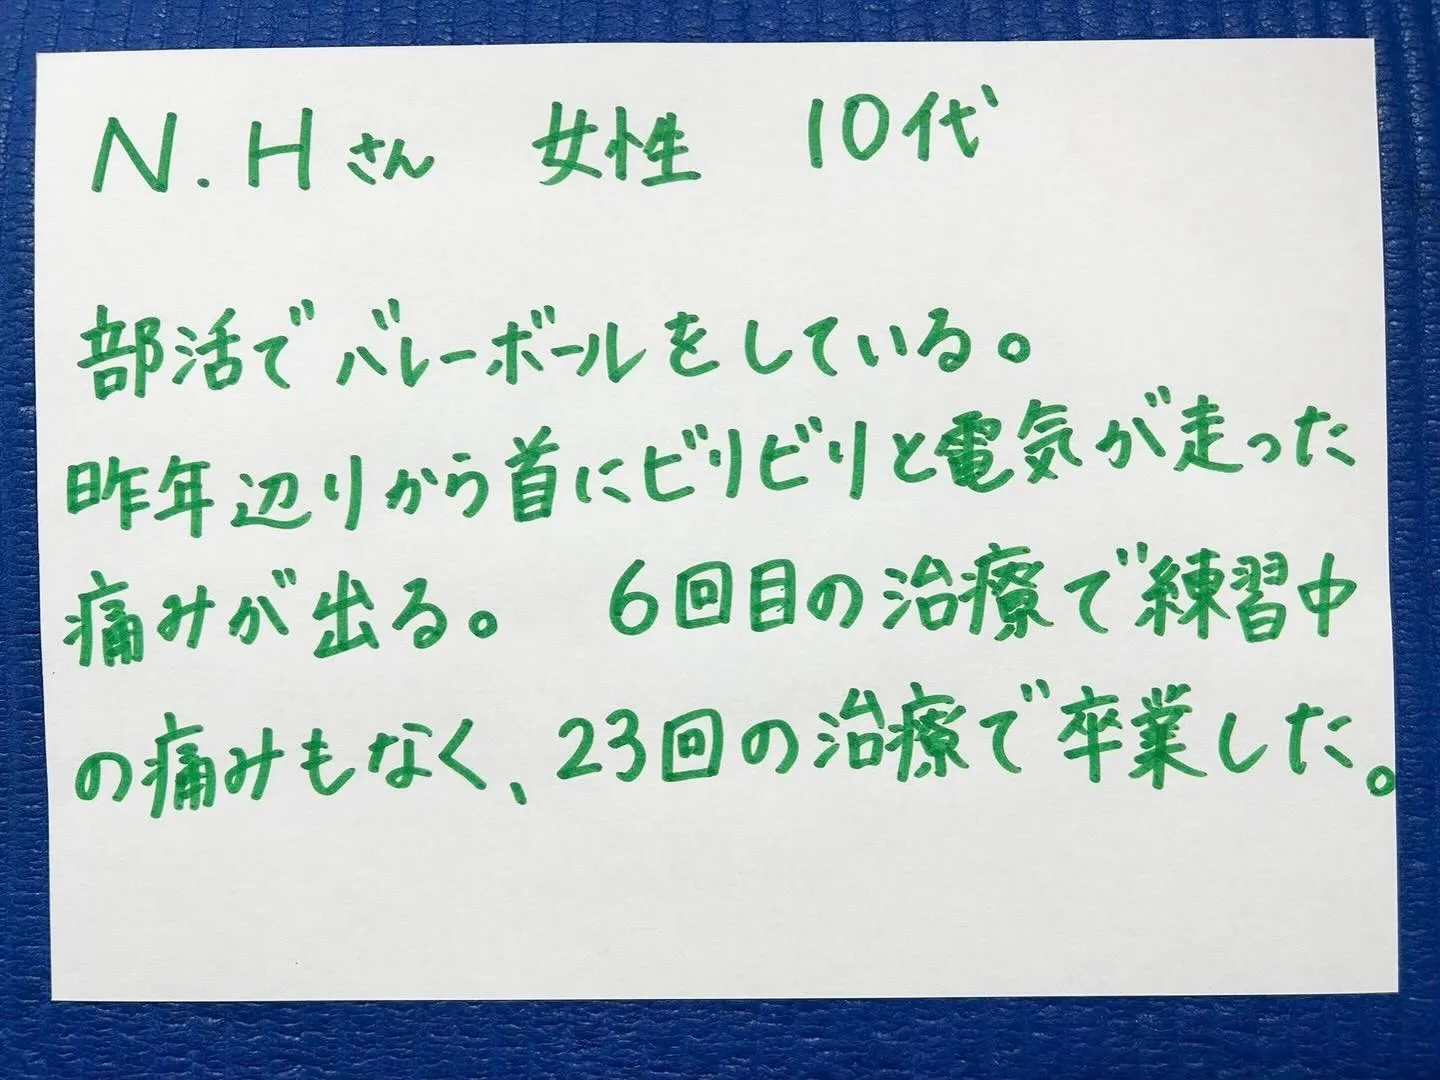 N.Hさん 女性 10代
部活でバレーボールをしている。
昨年辺りから首にビリビリと電気が走った
痛みが出る。 6回目の治療で練習中
の痛みもなく、23回の治療で卒業した。